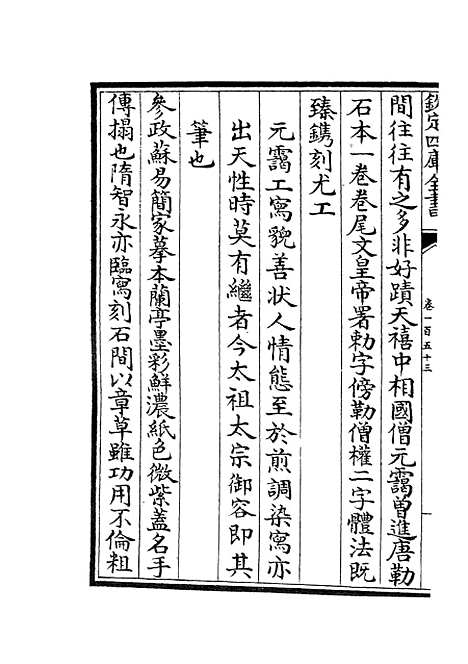 欽定四庫全書
卷一百五十三
間往往有之多非好蹟天禧中相國僧元靄曾進唐勒
石本一卷卷尾文皇帝署勅字傍勒僧權二字體法既
臻鐫刻尤工
元靄工寫貌善状人情態至於煎調染寫亦
出天性時莫有繼者今太祖太宗御容即其
筆也
參政蘇易簡家摹本蘭亭墨彩鮮濃紙色微紫蓋名手
傳搨也隋智永亦臨寫刻石間以章草雖功用不倫粗